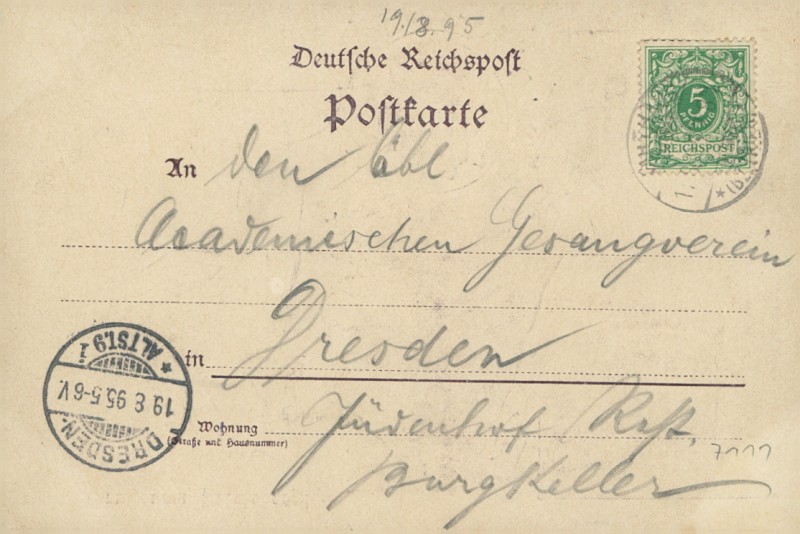 19/8.95
Deutsche Reichspost
Postkarte
5
PFENNIG
REICHSPOST
An den Löbl
Academischen Gesangverein
in Dresden
Wohnung
(Straße und Hausnummer)
Jüdenhof Rest.
Burgkeller
7111
DRESDEN.
19 8 95.5-6V.
* ALTST.9